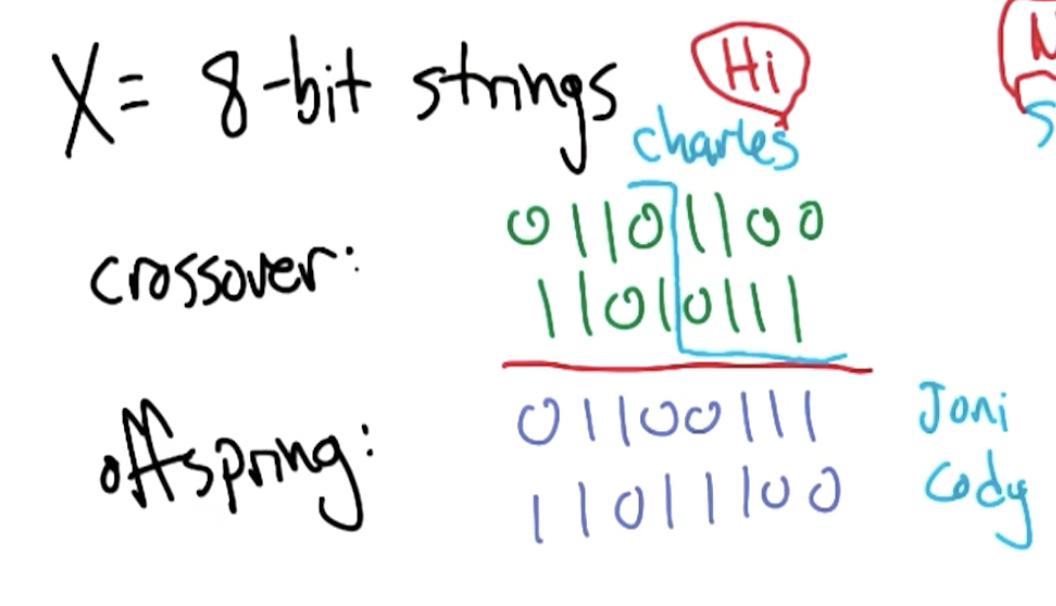 X = 8-bit strings
Hi
charles
crossover:
01101100
11010111
offspring:
01100111
Joni
11011100
Cody